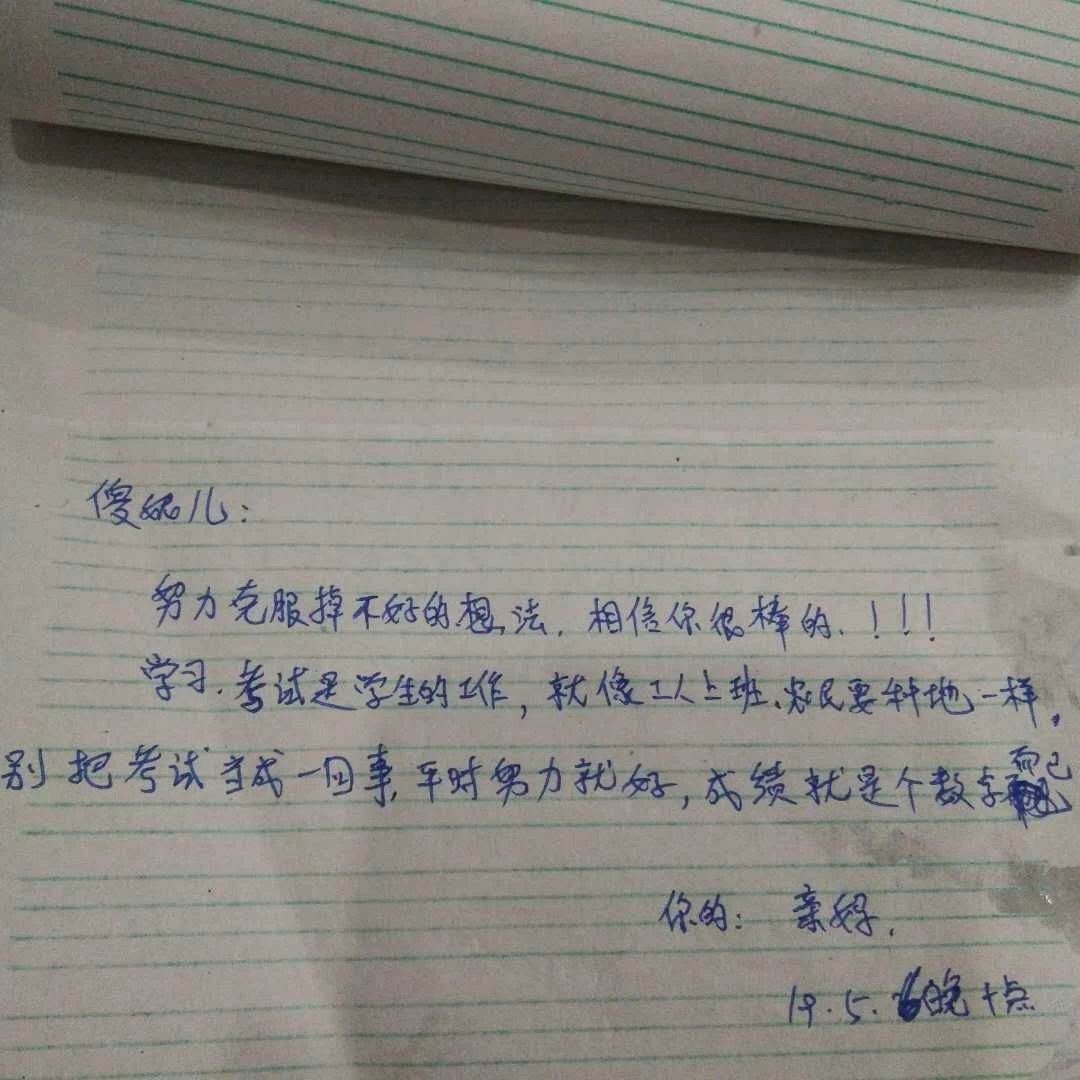 傻妮儿：
努力克服掉不好的想法，相信你很棒的.！！！
学习.考试是学生的工作，就像工人上班、农民要种地一样，
别把考试当成一回事，平时努力就好，成绩就是个数字而已
你的：亲妈.
19.5.6晚十点